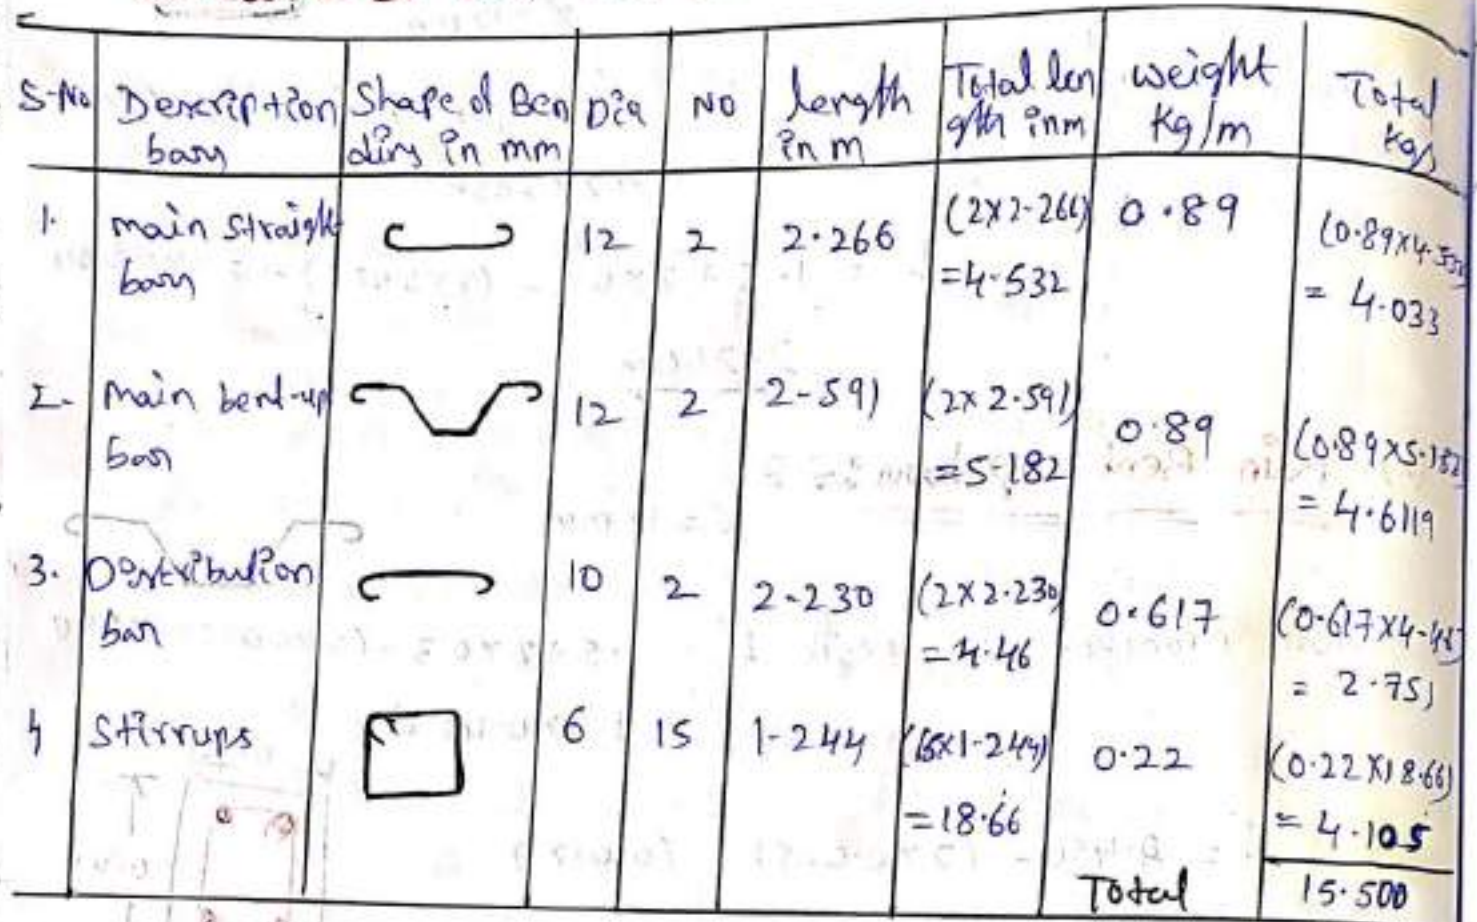 S-No Description bars Shape of Bending in mm Dia No length in m Total length inm weight Kg/m Total kgs
1. main straight bars 12 2 2.266 (2x2-266) =4.532 0.89 (0.89x4.532 = 4.033
2. Main bent-up bars 12 2 2-591 (2x 2.591) =5.182 0.89 (0.89x5.182) = 4.6119
3. Distribution bars 10 2 2-230 (2x2.230) =4.46 0.617 (0.617x4-46) = 2.751
4 Stirrups 6 15 1-244 (15x1-244) =18.66 0.22 (0.22x18.66) = 4.105
Total 15.500